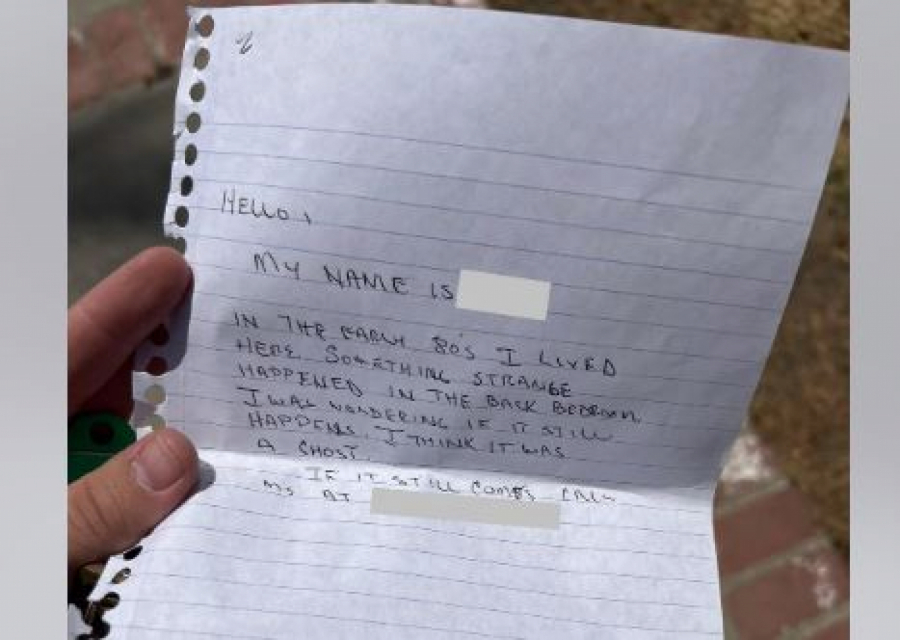 2
HELLO,
MY NAME IS
IN THE EARLY 80'S I LIVED
HERE. SOMETHING STRANGE
HAPPENED IN THE BACK BEDROOM.
I WAS WONDERING IF IT STILL
HAPPENS. I THINK IT WAS
A GHOST.
IF IT STILL COMES CALL
ME AT